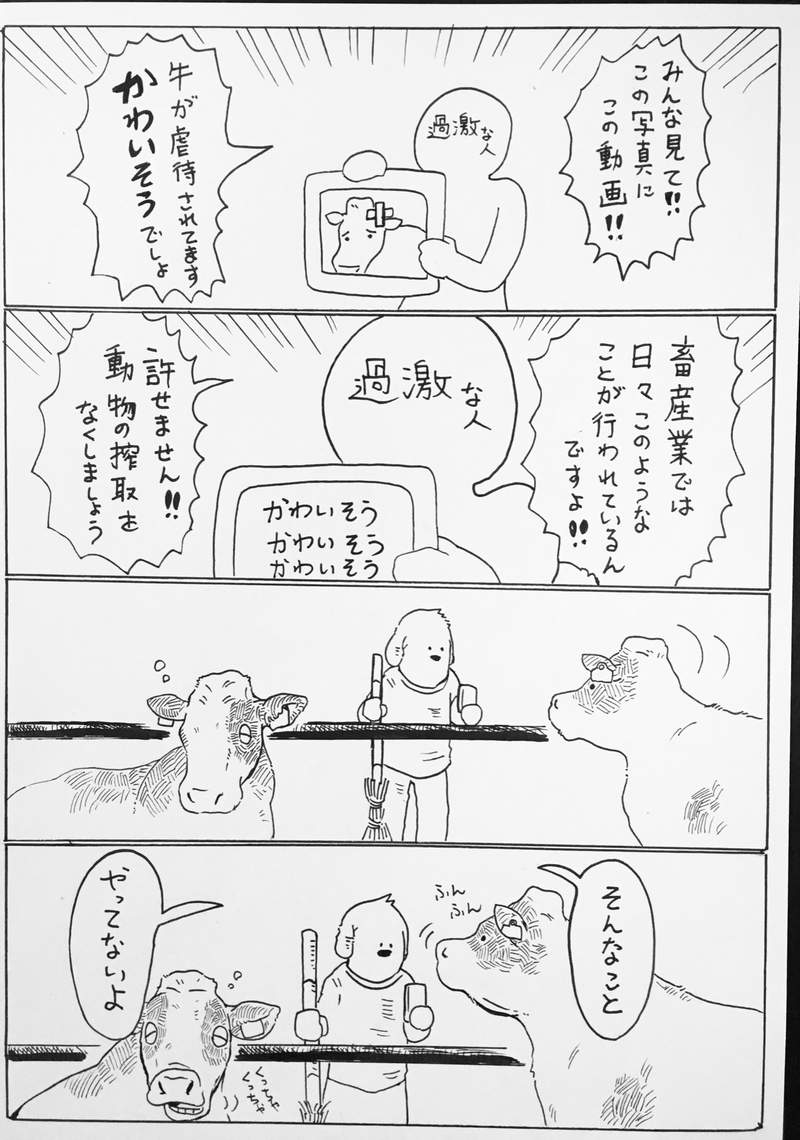 みんな見て!!
この写真に
この動画!!
過激な人
牛が虐待されてます
かわいそうでしょ
畜産業では
日々このような
ことが行われているん
ですよ!!
過激な人
許せません!!
動物の搾取を
なくしましょう
かわいそう
かわいそう
かわいそう
そんなこと
ふん
ふん
やってないよ
くっちゃ
くっちゃ